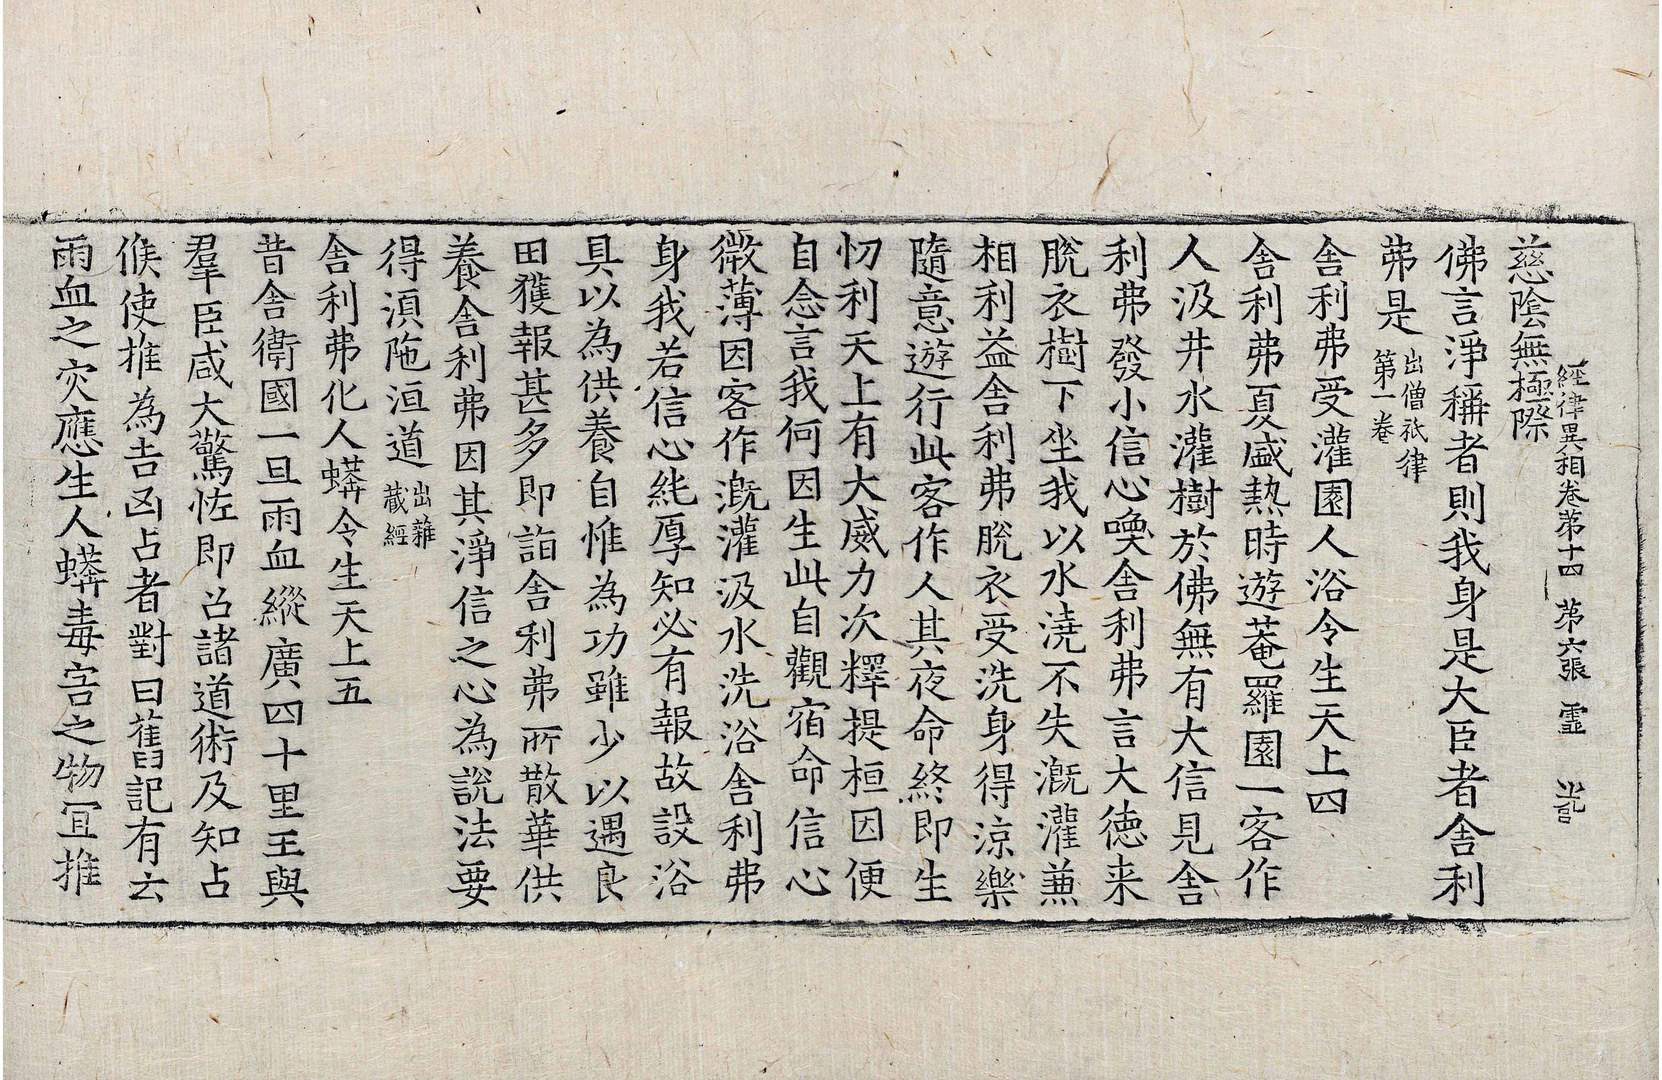 經律異相卷第十四 第六張 靈
慈陰無極際
佛言淨稱者則我身是大臣者舍利
弗是 出僧祇律第一卷
舍利弗受灌園人浴令生天上四
舍利弗夏盛熱時遊菴羅園一客作
人汲井水灌樹於佛無有大信見舍
利弗發小信心喚舍利弗言大德来
脫衣樹下坐我以水澆不失溉灌兼
相利益舍利弗脫衣受洗身得涼樂
隨意遊行此客作人其夜命終即生
忉利天上有大威力次釋提桓因便
自念言我何因生此自觀宿命信心
微薄因客作溉灌汲水洗浴舍利弗
身我若信心純厚知必有報故設浴
具以為供養自惟為功雖少以遇良
田獲報甚多即詣舍利弗所散華供
養舍利弗因其淨信之心為說法要
得湏陁洹道 出雜藏經
舍利弗化人蟒令生天上五
昔舍衛國一旦雨血縱廣四十里王與
羣臣咸大驚恠即召諸道術及知占
候使推為吉凶占者對曰舊記有云
雨血之灾應生人蟒毒害之物冝推